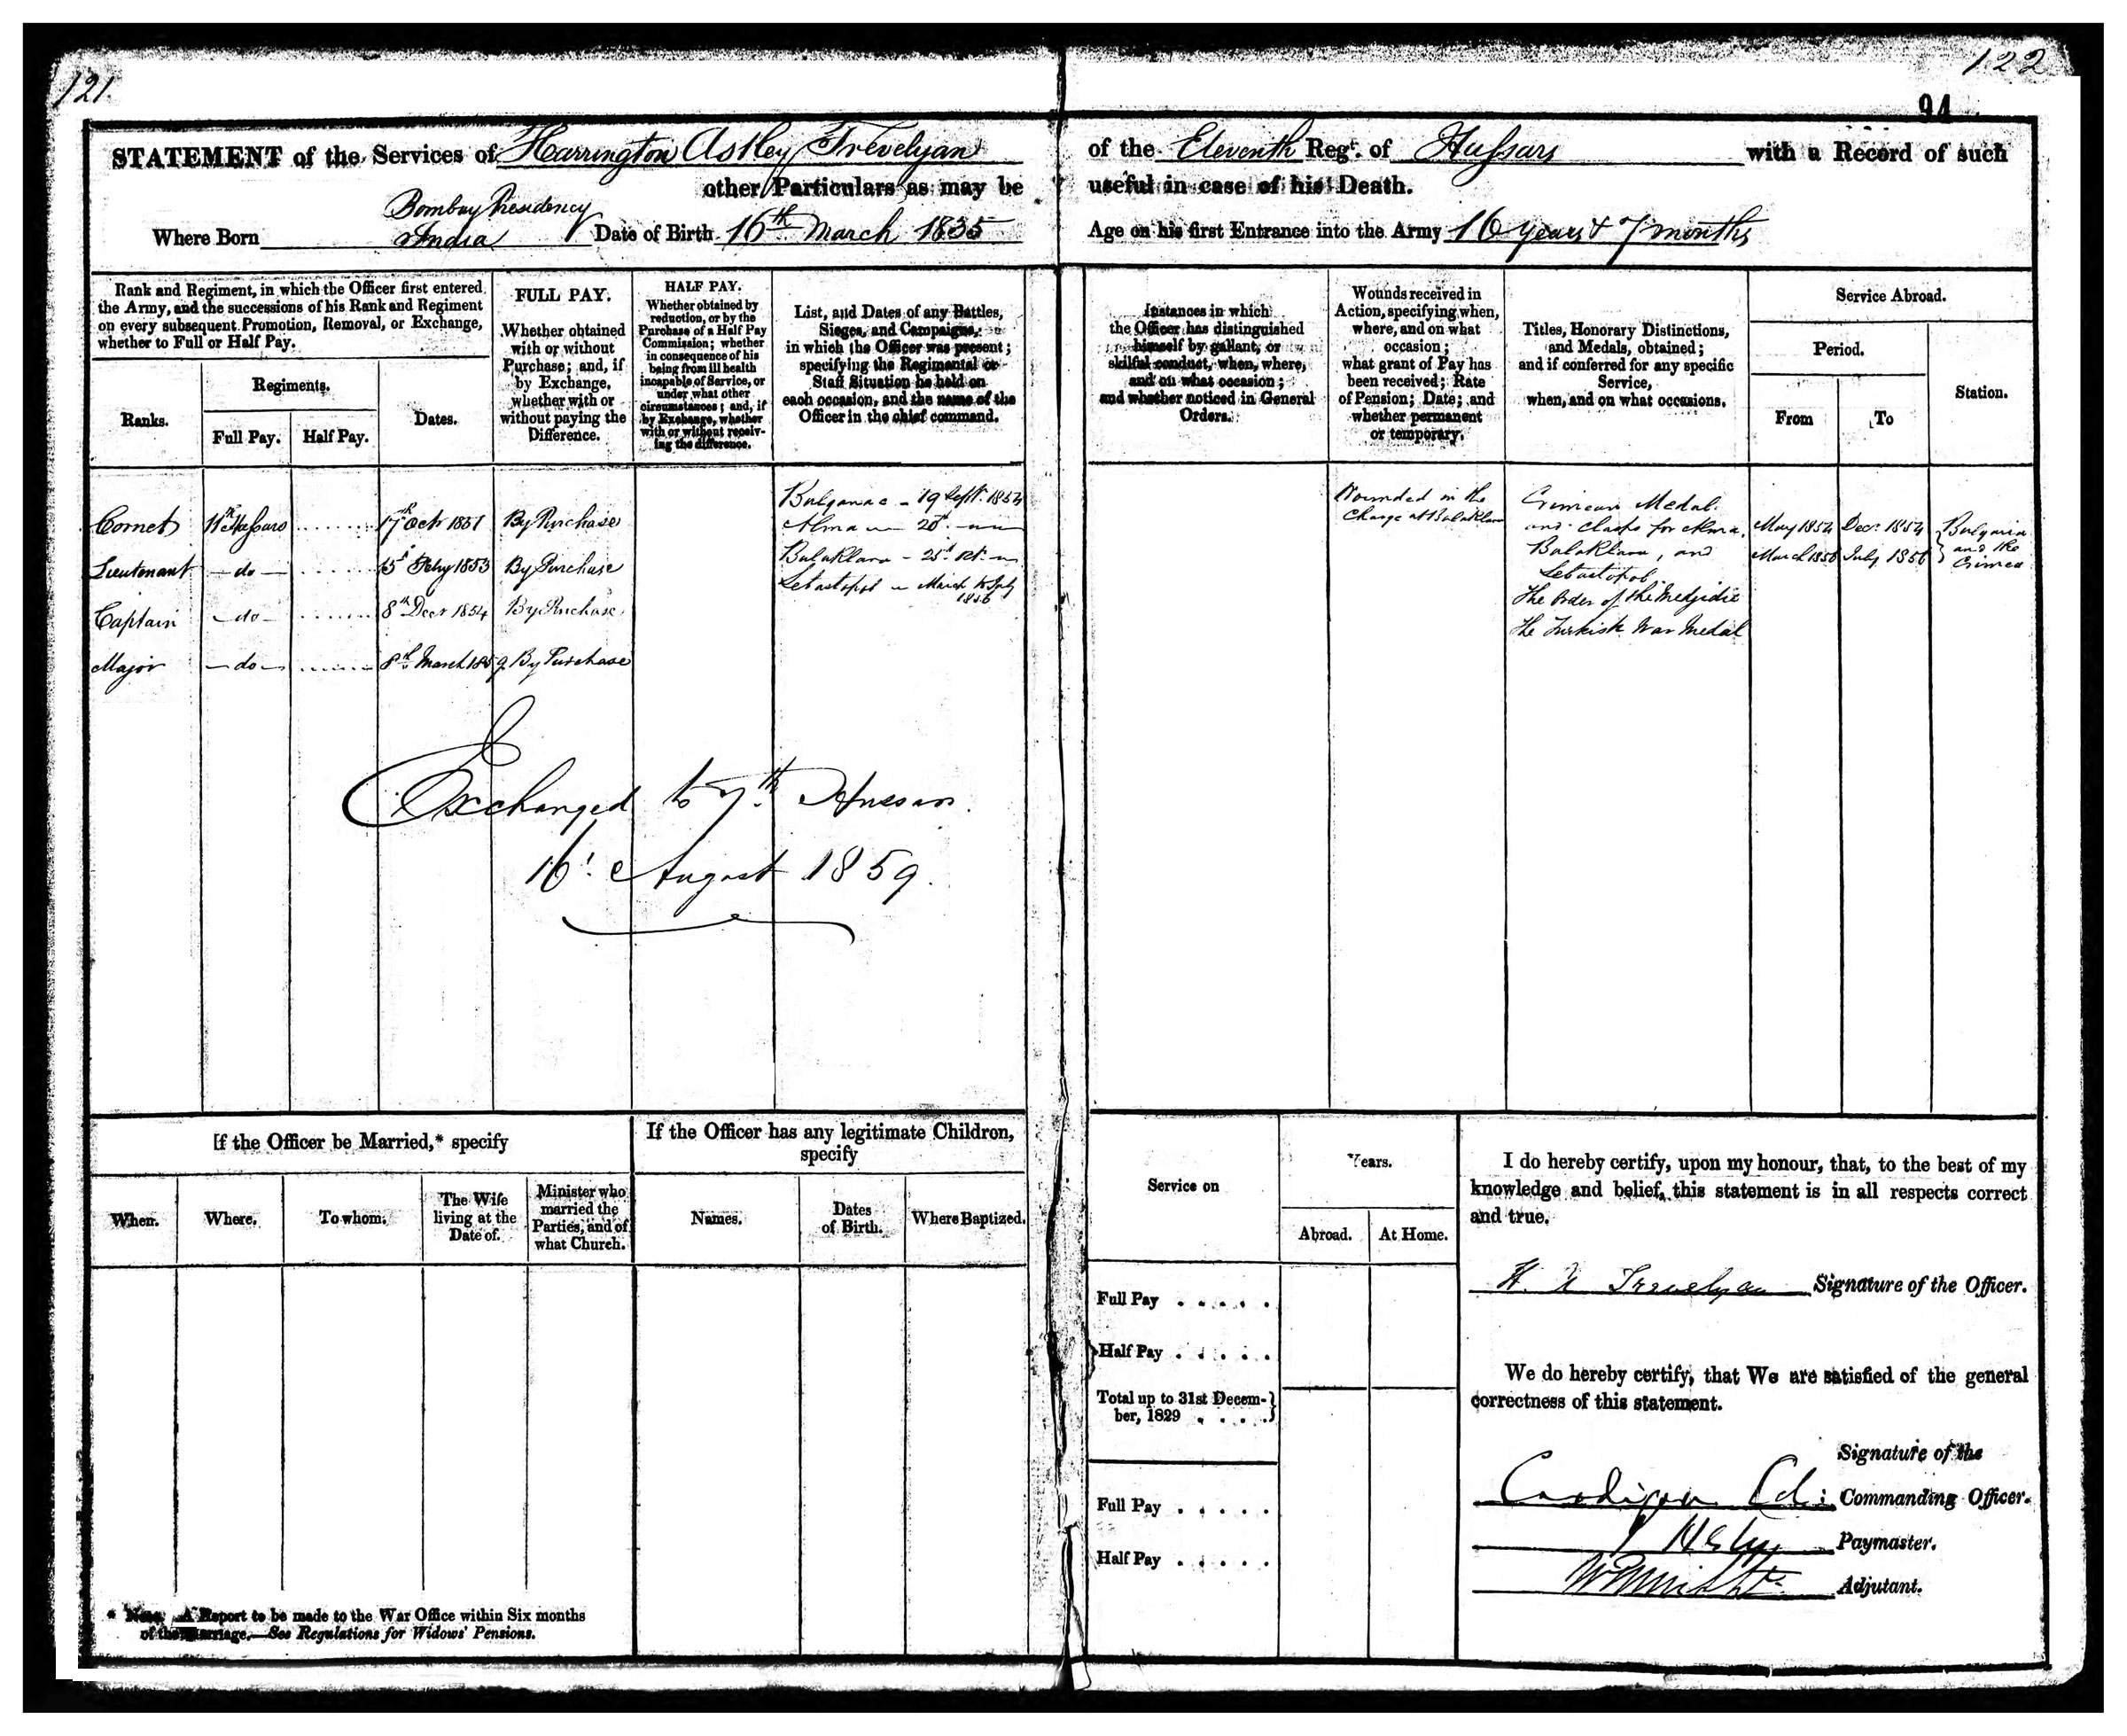 121.
122
94
STATEMENT of the Services of Harrington Astley Trevelyan of the Eleventh Regt. of Hussars with a Record of such
other Particulars as may be useful in case of his Death.
Where Born Bombay Presidency
India
Date of Birth 16th March 1835 Age on his first Entrance into the Army 16 years & 7 months
Rank and Regiment, in which the Officer first entered
the Army, and the successions of his Rank and Regiment
on every subsequent Promotion, Removal, or Exchange,
whether to Full or Half Pay.
Ranks.
Regiments.
Full Pay.
Half Pay.
Dates.
FULL PAY.
Whether obtained
with or without
Purchase; and, if
by Exchange,
whether with or
without paying the
Difference.
HALF PAY.
Whether obtained by
reduction, or by the
Purchase of a Half Pay
Commission; whether
in consequence of his
being from ill health
incapable of Service, or
under what other
circumstances; and, if
by Exchange, whether
with or without receiv-
ing the difference.
List, and Dates of any Battles,
Sieges, and Campaigns,
in which the Officer was present;
specifying the Regimental or
Staff Situation he held on
each occasion, and the name of the
Officer in the chief command.
Instances in which
the Officer has distinguished
himself by gallant, or
skilful conduct, when, where,
and on what occasion;
and whether noticed in General
Orders.
Wounds received in
Action, specifying when,
where, and on what
occasion;
what grant of Pay has
been received; Rate
of Pension; Date; and
whether permanent
or temporary.
Titles, Honorary Distinctions,
and Medals, obtained;
and if conferred for any specific
Service,
when, and on what occasions.
Service Abroad.
Period.
From
To
Station.
Cornet 11th Hussars 17th Octr 1851 By Purchase
Lieutenant do 15 Feby 1853 By Purchase
Captain do 8th Decr 1854 By Purchase
Major do 8th March 1859 By Purchase
Bulganac - 19 Septr. 1854
Alma 20th
Balaklava - 25th
Sebastopol March to July
1856
Wounded in the
Charge at Balaklava
Crimean Medal
and clasps for Alma,
Balaklava, and
Sebastopol.
The Order of the Medjidie
The Turkish War Medal
May 1854 Decr. 1854
March 1856 July 1856
Bulgaria
and the
Crimea
Exchanged to 7th Hussars.
16 August 1859.
If the Officer be Married,* specify
When.
Where.
To whom.
The Wife
living at the
Date of.
Minister who
married the
Parties, and of
what Church.
If the Officer has any legitimate Children,
specify
Names.
Dates
of Birth.
Where Baptized.
* Note. A Report to be made to the War Office within Six months
of the Marriage.—See Regulations for Widows' Pensions.
Service on
Years.
Abroad.
At Home.
Full Pay . . . . .
Half Pay . . . . .
Total up to 31st Decem-
ber, 1829 . . . .
Full Pay . . . . .
Half Pay . . . . .
I do hereby certify, upon my honour, that, to the best of my
knowledge and belief, this statement is in all respects correct
and true.
H. A Trevelyan Signature of the Officer.
We do hereby certify, that We are satisfied of the general
correctness of this statement.
Signature of the
Cardigan Commanding Officer.
Paymaster.
Adjutant.